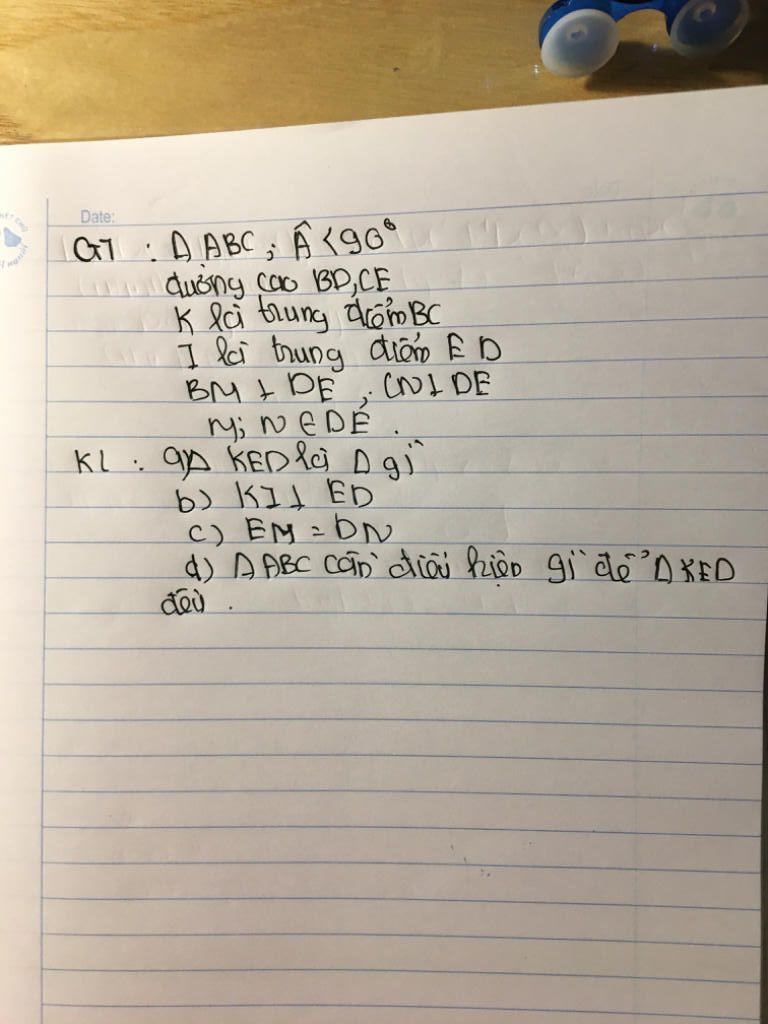 Date:
GT : Δ ABC ; Â < 90°
đường cao BD, CE
K là trung điểm BC
I là trung điểm ED
BM ⊥ DE , CN ⊥ DE
M; N ∈ DE .
KL : a) Δ KED là Δ gì
b) KI ⊥ ED
c) EM = DN
d) Δ ABC cần điều kiện gì để Δ KED
đều .